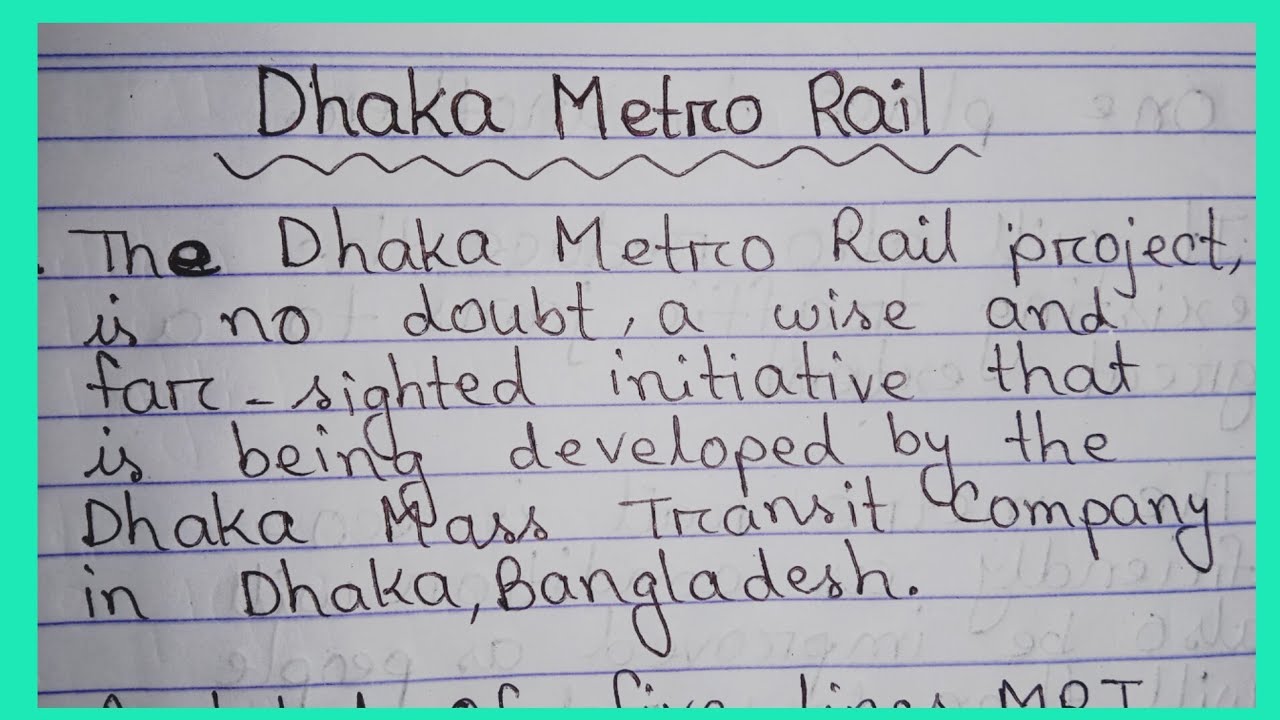 Dhaka Metro Rail
The Dhaka Metro Rail project,
is no doubt, a wise and
far-sighted initiative that
is being developed by the
Dhaka Mass Transit Company
in Dhaka, Bangladesh.
of five lines MRT